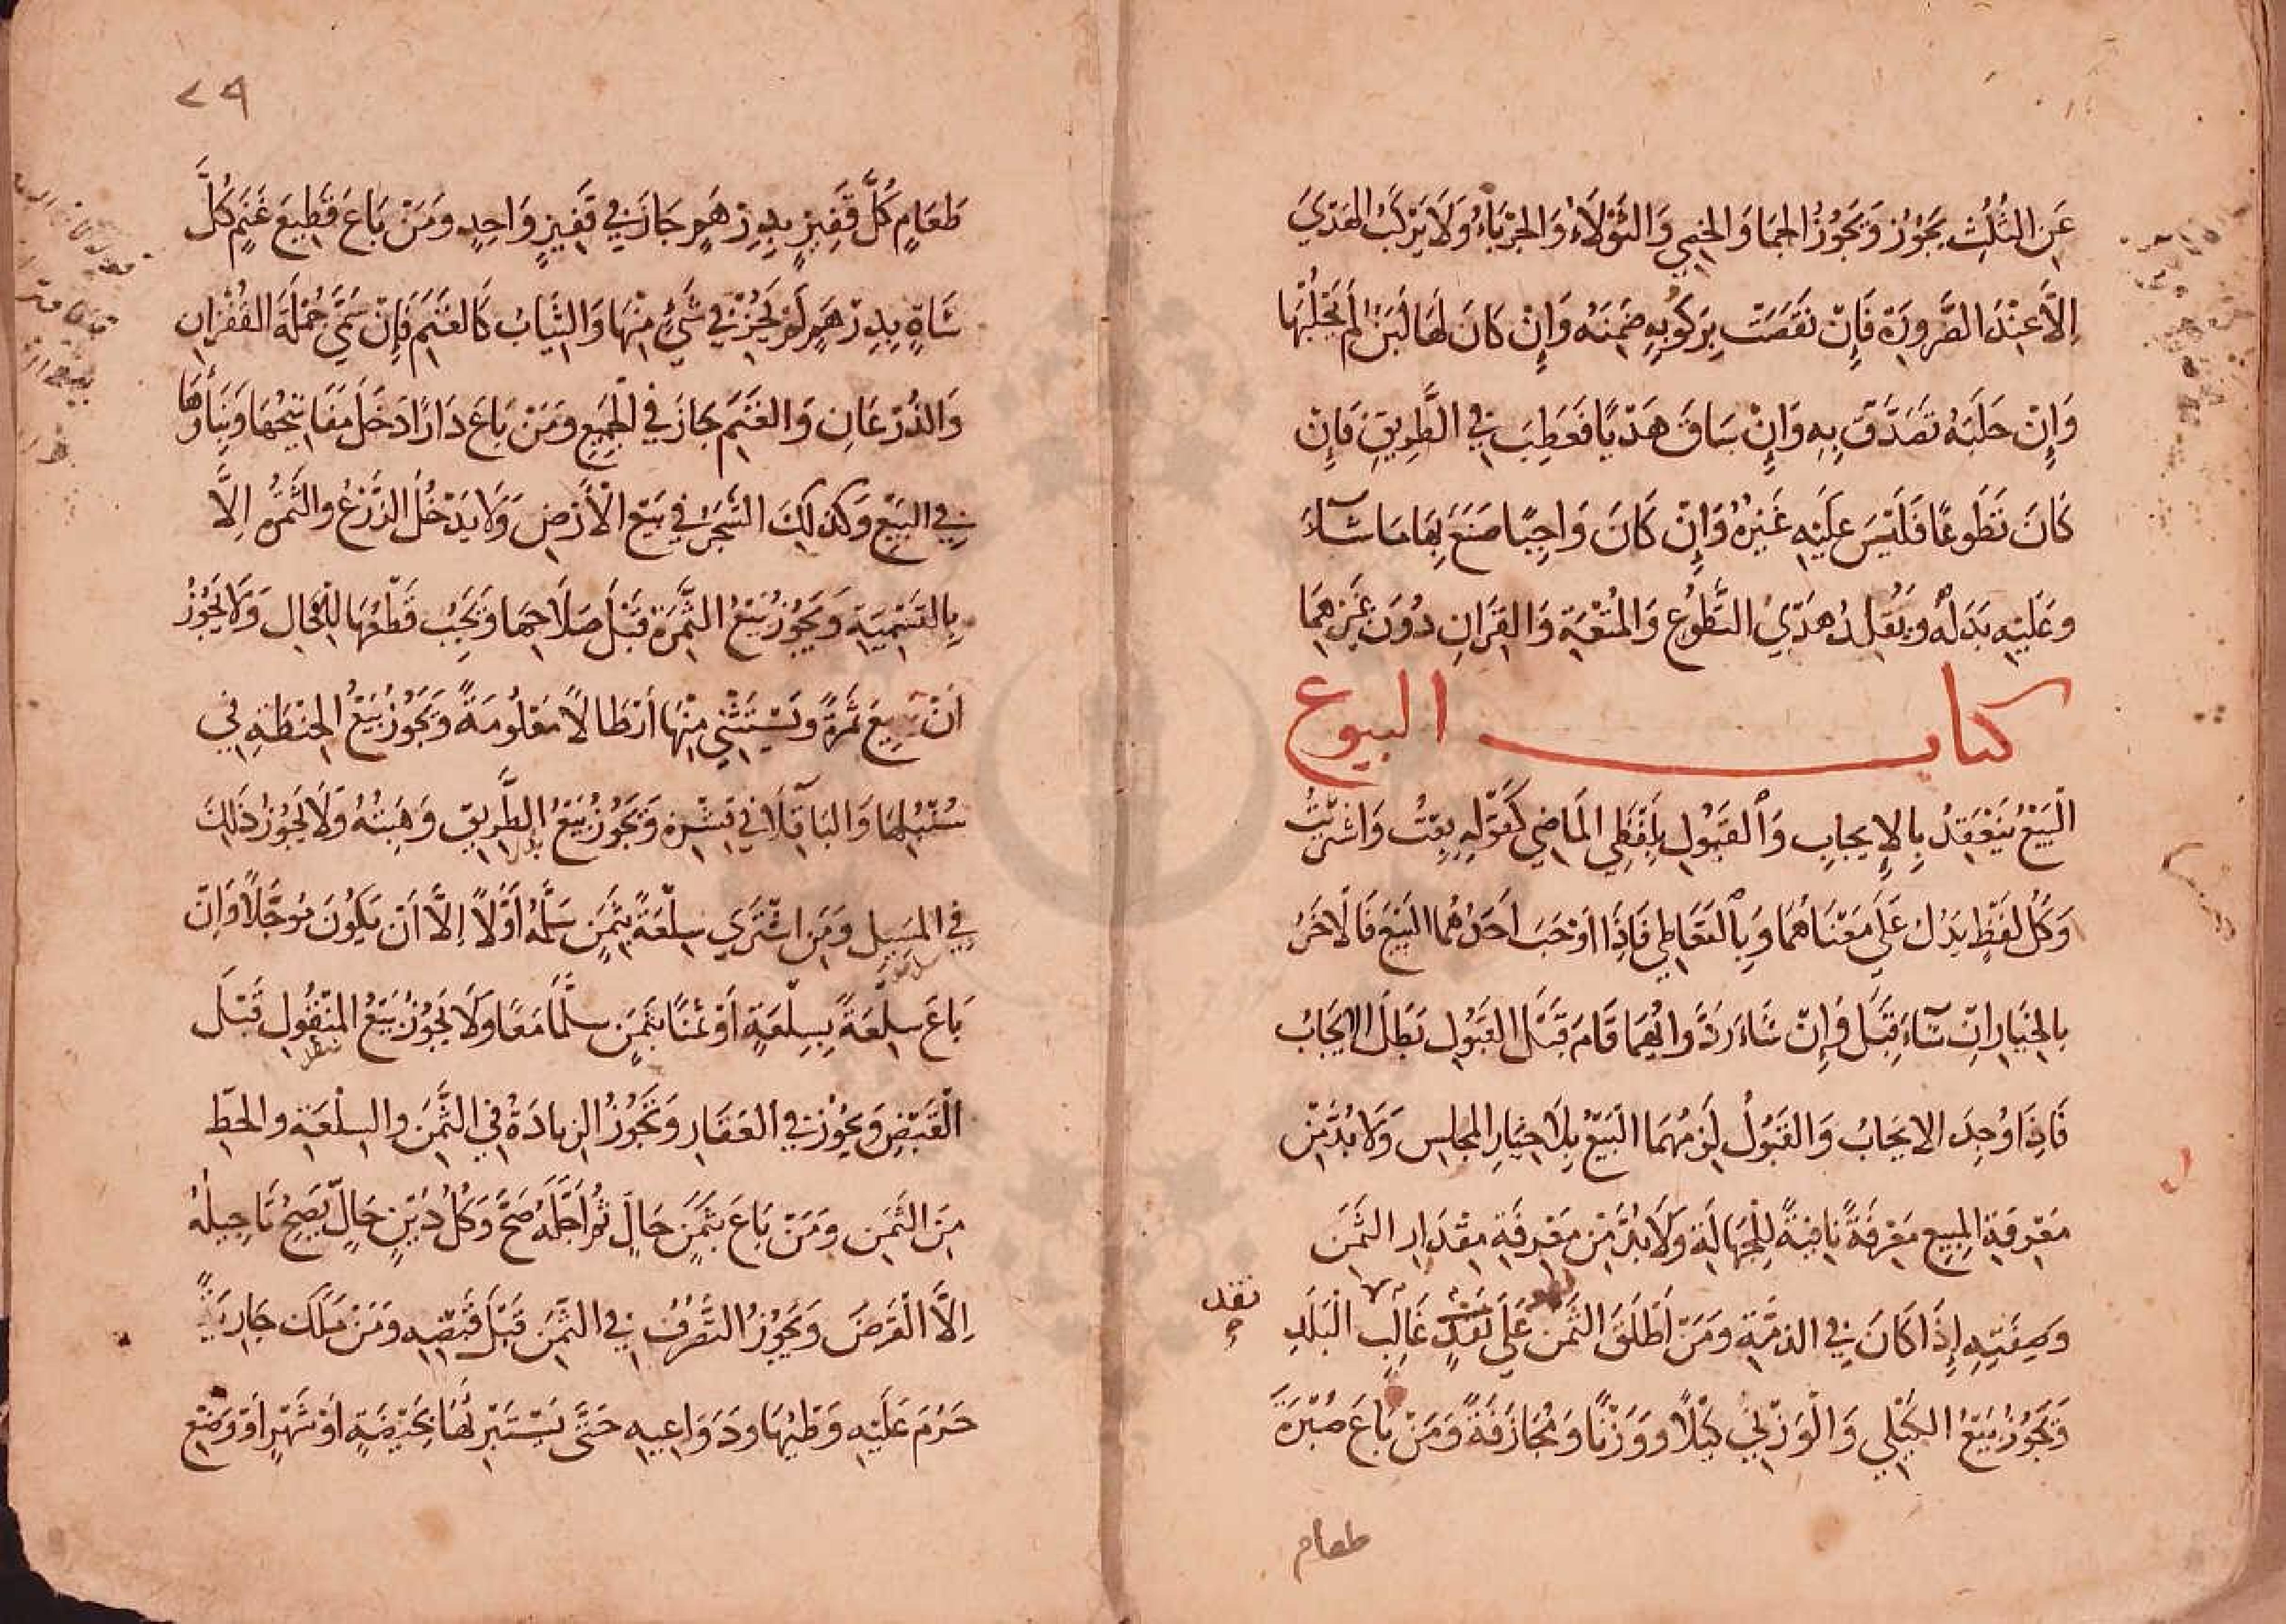 عَنِ الثُلُثِ يَجُوْزُ وَيَجُوْزُ الجمَا وَالخصِي وَالثَوْلَاءُ وَالجَرْبَاءُ وَلَا يَرْكَبُ الهَدْيَ
اِلَّا عِنْدَ الضَّرورَةِ فَاِنْ نَقَصَتْ بِرَكُوبِهِ ضَمِنَهُ وَاِنْ كَانَ لَهَا لَبَنٌ لَمْ يَحْلُبْهَا
وَاِنْ حَلَبَهُ تَصَدَّقَ بِهِ وَاِنْ سَاقَ هَدْيًا فَعَطِبَ فِي الطَّرِيقِ فَاِنْ
كَانَ تَطَوعًا فَلَيْسَ عَلَيْهِ غَيْرُهُ وَاِنْ كَانَ وَاجِبًا صَنَعَ بِهَا مَا شَآءَ
وعَلَيْهِ بَدَلُهُ ويُقَلِدُ هَدْيَ التَّطَوُعِ وَالمُتْعَةِ وَالقِرَانِ دُوَن غَيْرِهِمَا
كتاب البيوع
اَلْبَيْعُ يَنْعَقِدُ بِالاِيجَابِ وَالقَبُولِ بِلَفْظَي المَاضِي كَقَوْلِهِ بِعْتُ وَاشْتَرَيْتُ
وَكُلُ لَفْظٍ يَدُلُ عَلَى مَعْنَاهُمَا وَبِالتَعَاطِي فَاِذَا اَوْجَبَ اَحَدُهُمَا البَيْعَ فَالْاخَرُ
بِالخِيَارِ اِنْ شَآءَ قَبِلَ وَاِنْ شَاءَ رَدَّ وَايُهُمَا قَامَ قَبْلَ القَبُولِ بَطَلَ الاِيجَابُ
فَاِذَا وُجِدَ الاِيجَابُ وَالقَبُوْلُ لَزِمَهُمَا البَيْعُ بِلَا خِيَارِ المَجلِسِ وَلَا بُدَّ مِنْ
مَعْرِفَةِ المبِيعِ مَعْرِفَةً نَافِيَةً لِلْجَهَالَةِ وَلَا بُدَّ مِنْ مَعْرِفَةِ مِقْدَارِ الثَمَنِ
وَصِفَتِهِ اِذَا كَانَ فِي الذِمَّةِ ومَنْ اَطْلَقَ الثَمَنَ عَلَى نَقْدِ غَالِبِ الْبَلَدِ
نقد
وَيَجُوزُ بَيْعُ الكَيْلِي وَالْوَزْنِي كَيْلًا وَوَزْنًا وَمُجَازَفَةً وَمَنْ بَاعَ صُبْرَةَ
طعام
٧٩
طَعَامٍ كُلَّ قَفِيزٍ بِدِرْهَمٍ جَازَ فِي قَفِيزٍ وَاحِدٍ ومَنْ بَاعَ قَطِيعَ غَنَمٍ كُلَّ
شَاةٍ بِدِرْهَمٍ لَمْ يَجُزْ فِي شَيْءٍ مِنْهَا وَالثِيَابُ كَالغَنَمِ فَاِنْ سَمَّى جُمْلَةَ القُفْزَانِ
وَالذُرْعَانِ وَالغَنَمِ جَازَ فِي الجَمِيعِ ومَنْ بَاعَ دَارًا دَخَلَ مَفَاتِيحُهَا وَبِنَاؤُهَا
فِي البَيْعِ وَكَذلِكَ الشَجَرُ فِي بَيْعِ الْاَرْضِ وَلَا يَدْخُلُ الزَرْعُ والثَّمَرَةُ اِلَّا
بِالتَسْمِيَةِ وَيَجُوزُ بَيْعُ الثَّمَرَةِ قَبْلَ صَلَاحِهَا وَيَجِبُ قَطْعُهَا لِلْحَالِ وَلَا يَجُوْزُ
اَنْ يَبِيعَ ثَمَرَةً وَيَسْتَثْنِي مِنْهَا اَرْطَالًا مَعْلُومَةً وَيَجُوزُ بَيْعُ الحِنْطَةِ فِي
سُنْبُلِهَا وَالبَاقِلَا فِي قِشْرِهِ وَيَجُوْزُ بَيْعُ الطَّرِيقِ وَهِبَتُهُ وَلَا يَجُوزُ ذَلِكَ
فِي المَسِيلِ وَمَنِ اشْتَرَي سِلْعَةً بِثَمَنٍ سَلَّمَهُ اَوَّلًا اِلَّا اَنْ يَكُونَ مُوَجَّلًا وَاِنْ
بَاعَ سِلعَةً بِسِلْعَةٍ اَوْ ثَمَنًا بِثَمَنٍ سلَّمَا مَعًا وَلَا يَجُوْزُ بَيْعُ المَنْقُولِ قَبْلَ
القَبْضِ وَيَجُوْزُ فِي العَقَارِ وَتَجُوْزُ الزِيادَةُ فِي الثَّمَنِ والسِلْعَةِ والحَطِّ
مِنَ الثَمَنِ ومَنْ بَاعَ بِثَمَنٍ حَالٍ ثُمَّ اَجَّلَهُ صَحَّ وَكُلُ دَيْنٍ حَالٍّ يَصِحُ تَاجِيلُهُ
اِلَّا الْقَرْضَ وَيَجُوزُ التَّصَرُفُ فِي الثَّمَنِ قَبْلَ قَبْضِهِ ومَنْ مَلَكَ جَارِيَةً
حَرُمَ عَلَيْهِ وَطْيُهَا ودَوَاعِيهِ حَتَّى يَسْتَبْرِئَهَا بِحَيْضَةٍ اَوْ شَهْرٍ اَوْ وَضْعِ